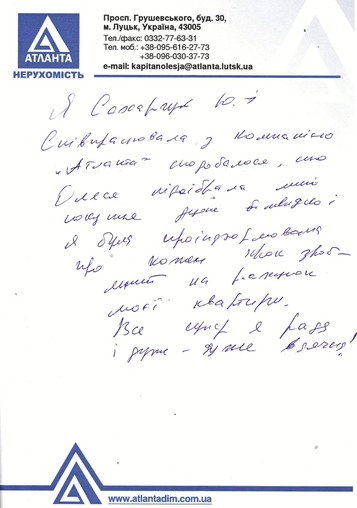 Просп. Грушевського, буд. 30,
м. Луцьк, Україна, 43005
Тел./факс: 0332-77-63-31
Тел. моб.: +38-095-616-27-73
+38-096-030-37-73
e-mail: kapitanolesja@atlanta.lutsk.ua
АТЛАНТА
НЕРУХОМІСТЬ
Я Ю. І
Співпрацювала з компанією
„Атланта" сподобалося, що
Олеся підібрала мені
покупця дуже швидко і
я була проінформована
про кожен крок
на рахунок
моєї квартири.
Все я рада
і дуже – дуже вдячна!
АТЛАНТА
www.atlantadim.com.ua